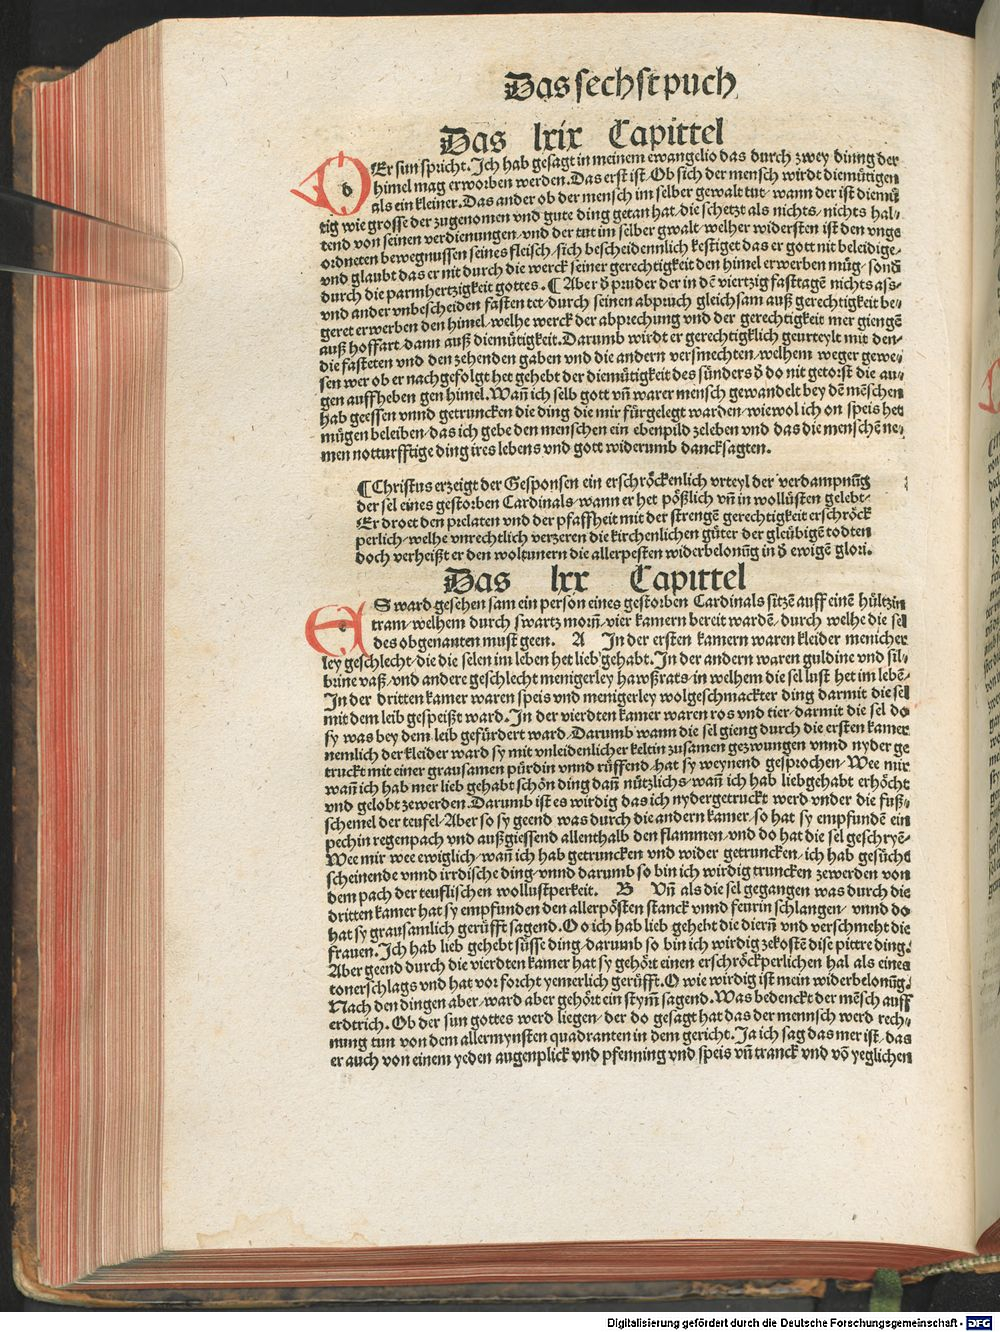 Das sechst puch
Das lxix Capittel
DEr sun spricht. Ich hab gesagt in meinem ewangelio das durch zwey dinng der
himel mag erworben werden. Das erst ist. Ob sich der mensch wirdt diemütigen
als ein kleiner. Das ander ob der mensch im selber gewalt tut/ wann der ist diemü
tig wie grosse der zugenomen vnd gute ding getan hat/ die schetzt als nichts/ nichts hal/
tend von seinen verdienungen/ vnd der tut im selber gwalt/ welher widersten ist den vnge
ordneten bewegnussen seines fleisch/ sich bescheidennlich kestiget das er gott nit beleidige/
vnd glaubt das er nit durch die werck seiner gerechtigkeit den himel erwerben müg/ sond̄
durch die parmhertzigkeit gottes. ¶ Aber d̄ pruder der in dē viertzig fasttagē nichts ass/
vnd ander vnbescheiden fasten tet/ durch seinen abpruch gleichsam auß gerechtigkeit be/
geret erwerben den himel/ welhe werck der abprechung vnd der gerechtigkeit mer giengē
auß hoffart/ dann auß diemütigkeit. Darumb wirdt er gerechtigklich geurteylt mit den/
die fasteten vnd den zehenden gaben vnd die andern versmechten/ welhem weger gewe/
sen wer ob er nachgefolgt het gehebt der diemütigkeit des sünders d̄ do nit getorst die au/
gen auffheben gen himel. Wañ ich selb gott vñ warer mensch gewandelt bey dē mēschen
hab geessen vnnd getruncken die ding die mir fürgelegt warden/ wiewol ich on speis het
mügen beleiben/ das ich gebe den menschen ein ebenpild zeleben vnd das die menschē ne/
men notturfftige ding ires lebens vnd gott widerumb dancksagten.
¶ Christus erzeigt der Gesponsen ein erschröckenlich vrteyl der verdampnūg
der sel eines gestorben Cardinals/ wann er het pößlich vñ in wollüsten gelebt/
Er droet den prelaten vnd der pfaffheit mit der strengē gerechtigkeit erschröck
perlich/ welhe vnrechtlich verzeren die kirchenlichen güter der gleübigē todten
doch verheißt er den woltunern die allerpesten widerbelonūg in d̄ ewigē glori.
Das lxx Capittel
ES ward gesehen sam ein person eines gestorben Cardinals sitzē auff einē hültzin
tram/ welhem durch swartz morñ/ vier kamern bereit wardē/ durch welhe die sel
des obgenanten must geen. A In der ersten kamern waren kleider menicher
ley geschlecht/ die die selen im leben het lieb gehabt. In der andern waren guldine vnd sil/
brine vaß/ vnd andere geschlecht menigerley hawßrats/ in welhem die sel lust het im lebē/
In der dritten kamer waren speis vnd menigerley wolgeschmackter ding darmit die sel
mit dem leib gespeißt ward. In der vierdten kamer waren ros vnd tier/ darmit die sel do
sy was bey dem leib gefürdert ward. Darumb wann die sel gieng durch die ersten kamer
nemlich der kleider ward sy mit vnleidenlicher keltin zusamen gezwungen vnnd nyder ge
truckt mit einer grausamen pürdin vnnd rüffend/ hat sy weynend gesprochen/ Wee mir
wañ ich hab mer lieb gehabt schön ding dañ nützlichs/ wañ ich hab liebgehabt erhöcht
vnd gelobt zewerden. Darumb ist es wirdig das ich nydergetruckt werd vnder die fuß/
schemel der teufel/ Aber so sy geend was durch die andern kamer/ so hat sy empfundē ein
pechin regenpach vnd außgiessend allenthalb den flammen/ vnd do hat die sel geschryē/
Wee mir wee ewiglich/ wañ ich hab getruncken vnd wider getruncken/ ich hab gesücht
scheinende vnnd irrdische ding/ vnnd darumb so bin ich wirdig truncken zewerden von
dem pach der teuflischen wollustperkeit. B Vñ als die sel gegangen was durch die
dritten kamer hat sy empfunden den allerpösten stanck vnnd feurin schlangen/ vnnd do
hat sy grausamlich gerüfft sagend. O o ich hab lieb gehebt die dierñ vnd verschmeht die
frauen. Ich hab lieb gehebt süsse ding/ darumb so bin ich wirdig zekostē dise pittre ding.
Aber geend durch die vierdten kamer hat sy gehört einen erschröckperlichen hal als eines
tonerschlags vnd hat vor forcht yemerlich gerüfft. O wie wirdig ist mein widerbelonūg.
Nach den dingen aber/ ward aber gehört ein stym̃ sagend. Was bedenckt der mēsch auff
erdtrich. Ob der sun gottes werd liegen/ der do gesagt hat das der mennsch werd rech/
nung tun von dem allermynsten quadranten in dem gericht. Ja ich sag das mer ist/ das
er auch von einem yeden augenplick vnd pfenning vnd speis vñ tranck vnd vō yeglichen
Digitalisierung gefördert durch die Deutsche Forschungsgemeinschaft - DFG